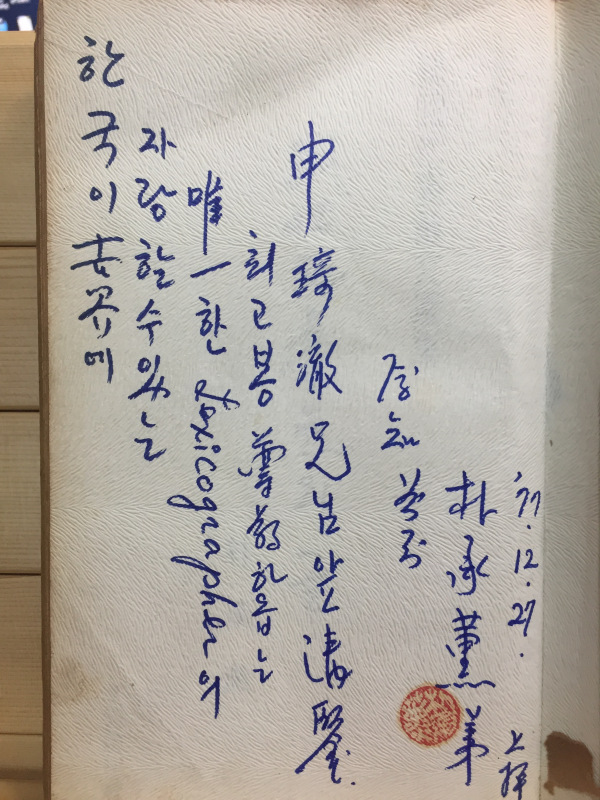 한국이 世界에
자랑할 수 있는
唯一한 Lexicographer의
최고봉 尊敬하옵는
申琦澈兄님 앞 淸鑒.
朴承薰 弟 上拜
'77.12.27.